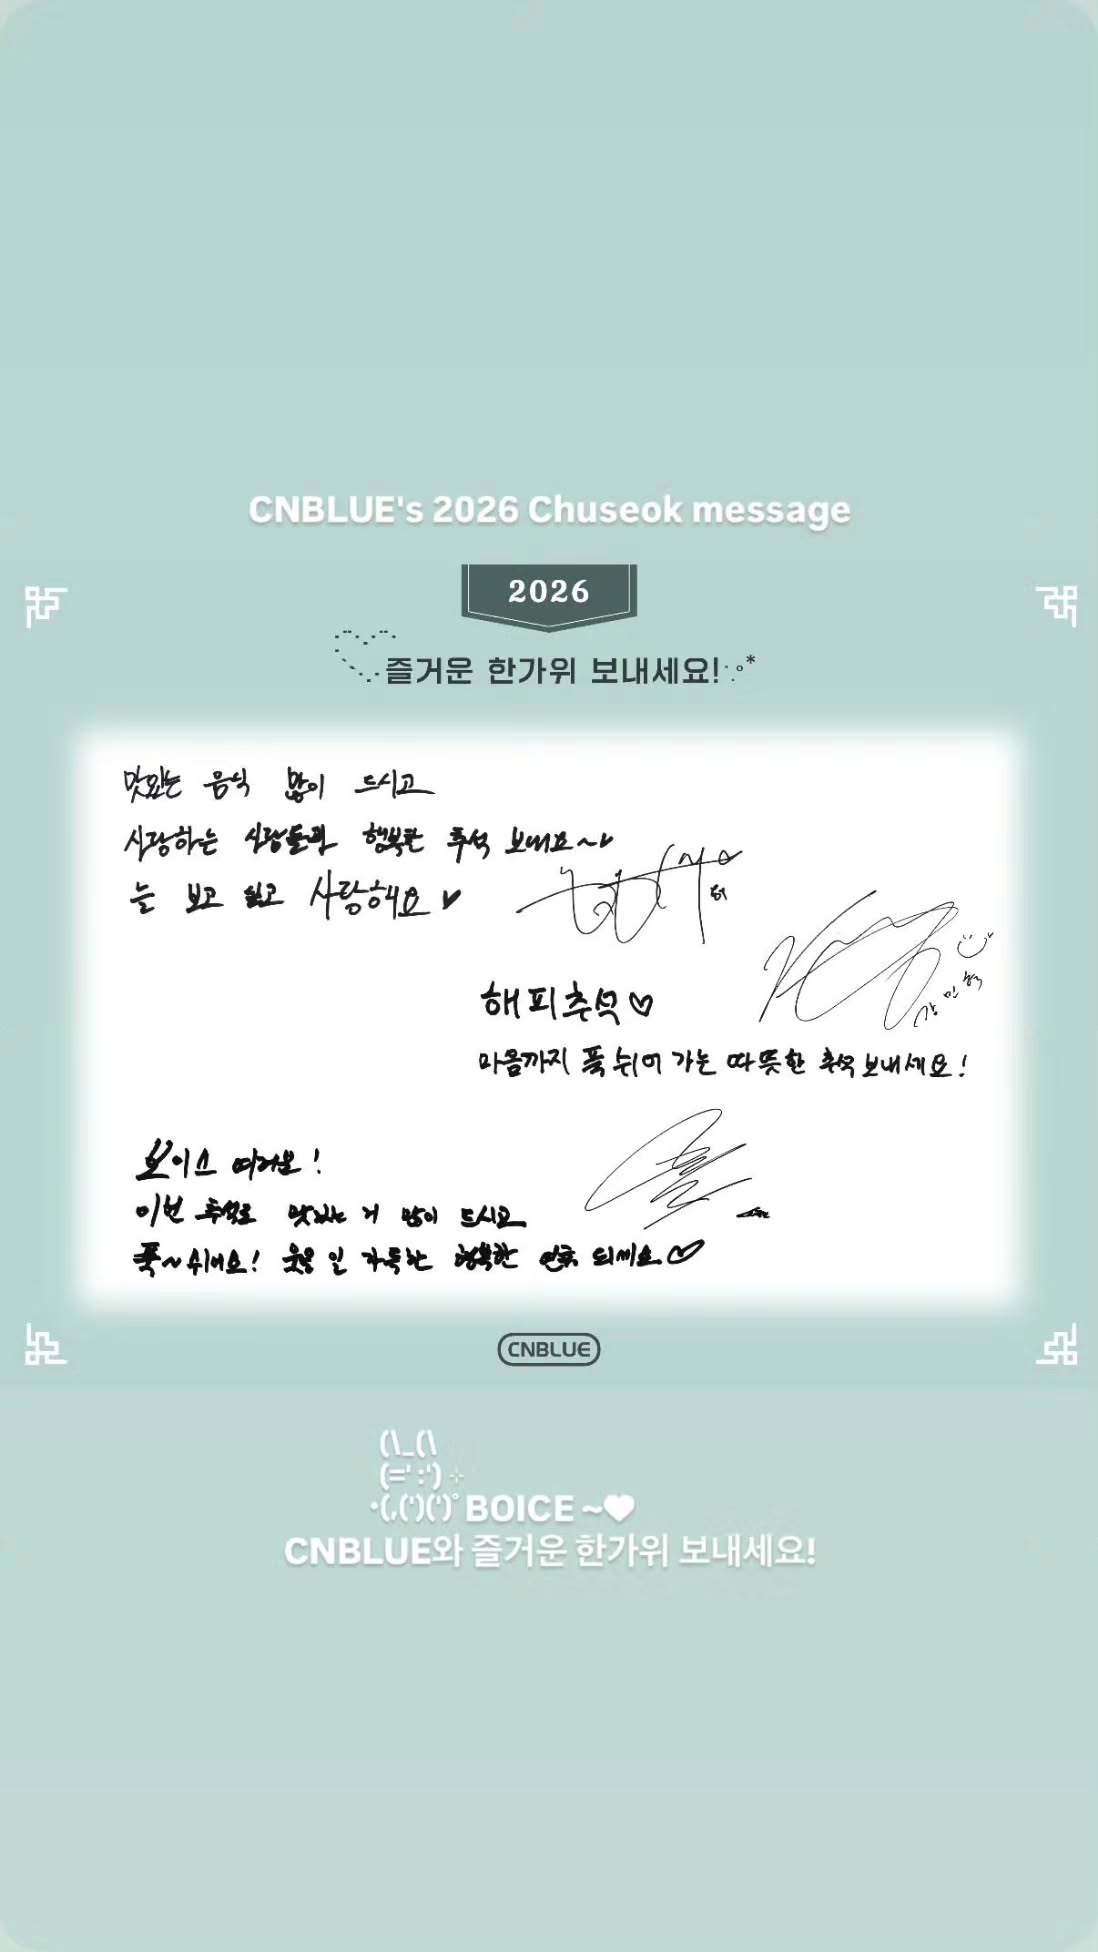 CNBLUE's 2026 Chuseok message
2026
즐거운 한가위 보내세요!
맛있는 음식 많이 드시고
사랑하는 사람들과 행복한 추석 보내요~
늘 보고 싶고 사랑해요♥
해피추석♡
강민혁
마음까지 푹 쉬어 가는 따뜻한 추석 보내세요!
보이스 여러분!
이번 추석도 맛있는 거 많이 드시고
푹~쉬어요! 웃을 일 가득한 행복한 연휴 되세요♡
CNBLUE
(\_(\
(=' :')
(,(')(')
BOICE ~♥
CNBLUE와 즐거운 한가위 보내세요!